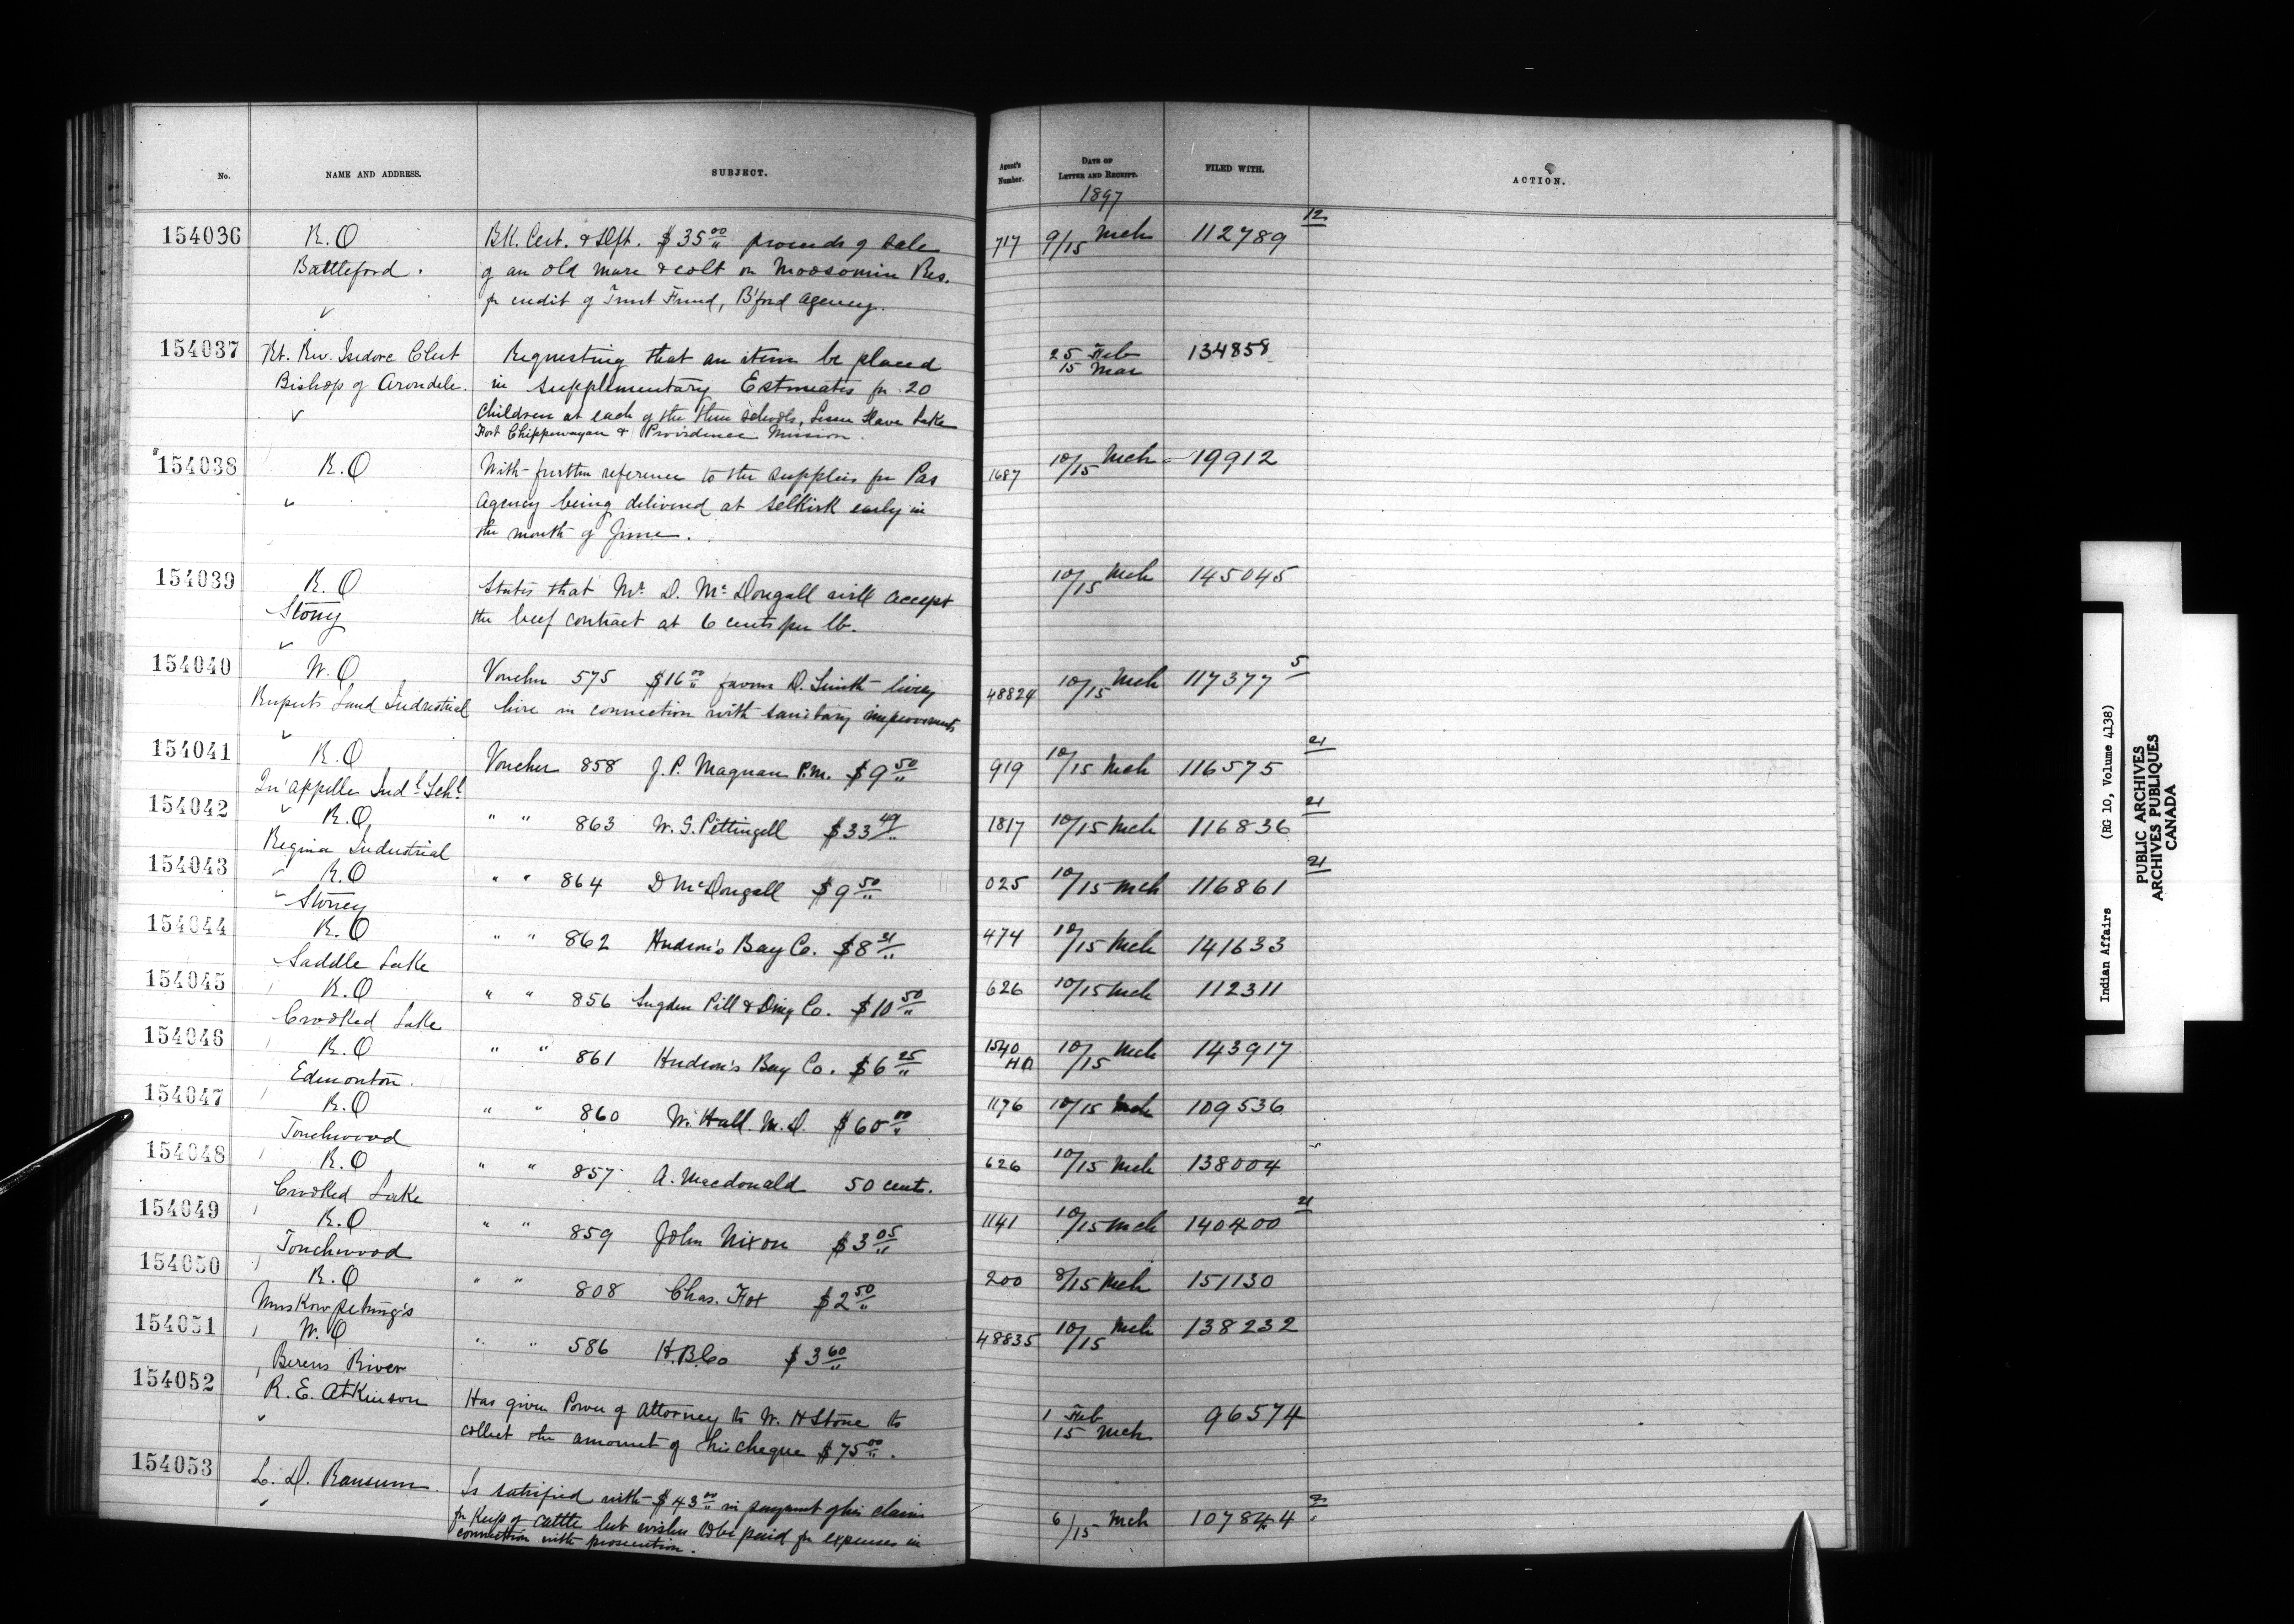 No. NAME AND ADDRESS. SUBJECT. Agent's Number. DATE OF LETTER AND RECEIPT. FILED WITH. ACTION.
1897
154036 R.O Bk. Cert. & Dft. $35 00/" proceeds of sale 717 9/15 Mch 112789 12
Battleford. of an old mare & colt on Moosomin Res.
for credit of Trust Fund, B'ford Agency.
154037 Rt. Rev. Isidore Clut Requesting that an item be placed 25 Feb 134858
Bishop of Arondele. in Supplementary Estimates for 20 15 Mar
Children at each of the three schools, Lesser Slave Lake
Fort Chippewayan & Providence Mission.
154038 R.O With further reference to the supplies for Pas 1687 10/15 Mch 19912
Agency being delivered at Selkirk early in
the month of June.
154039 R.O States that Mr. D. McDougall will accept 10/15 Mch 145045
Stony the beef contract at 6 cents per lb.
154040 W.O Voucher 575 $16 00/" favour D. Smith livery 48824 10/15 Mch 117377 5
Ruperts Land Industrial hire in connection with sanitary improvements
154041 R.O Voucher 858 J.P. Magnan P.M. $9 50/" 919 10/15 Mch 116575 21
Qu'appelle Indl. Schl.
154042 R.O. " " 863 W.G. Pettingell $33 49/" 1817 10/15 Mch 116836 21
Regina Industrial
154043 R.O " " 864 D McDougall $9 50/" 025 10/15 Mch 116861 21
Stoney
154044 R.O " " 862 Hudson's Bay Co. $8 31/" 474 10/15 Mch 141633
Saddle Lake
154045 R.O " " 856 Sugden Pill & Drug Co. $10 50/" 626 10/15 Mch 112311
Crooked Lake
154046 R.O " " 861 Hudson's Bay Co. $6 25/" 1540 10/15 Mch 143917
Edmonton.
154047 R.O " " 860 W. Hall. M.D. $60 00/" 1176 10/15 Mch 109536
Touchwood
154048 R.O " " 857 A. Macdonald 50 cents. 626 10/15 Mch 138004
Crooked Lake
154049 R.O " " 859 John Nixon $3 05/" 1141 10/15 Mch 140400 21
Touchwood
154050 R.O " " 808 Chas. Fox $2 50/" 200 8/15 Mch 151130
Muskowpetung's
154051 W.O " " 586 H.B.Co $3 60/" 48835 10/15 Mch 138232
Berens River
154052 R.E. Atkinson Has given Power of Attorney to W. H Stone to 1 Feb 96574
collect the amount of his cheque $75 00/". 15 Mch
154053 L. D. Ransum. Is satisfied with $43 00/" in payment of his claim
for keep of cattle but wishes to be paid for expenses in 6/15 Mch 107844
connection with prosecution.
Indian Affairs (RG 10, Volume 4138)
PUBLIC ARCHIVES
ARCHIVES PUBLIQUES
CANADA